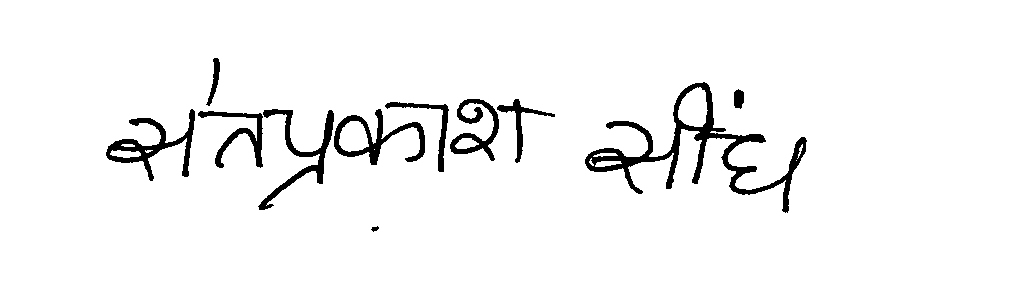 संतप्रकाश सींघ